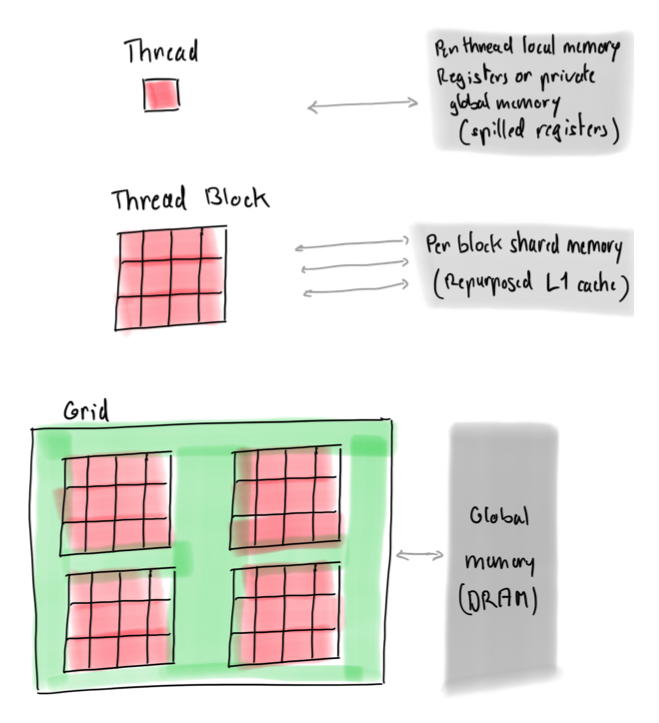 Thread
Per thread local memory
Registers or private
global memory
(spilled registers)
Thread Block
Per block shared memory
(Repurposed L1 cache)
Grid
Global
memory
(DRAM)